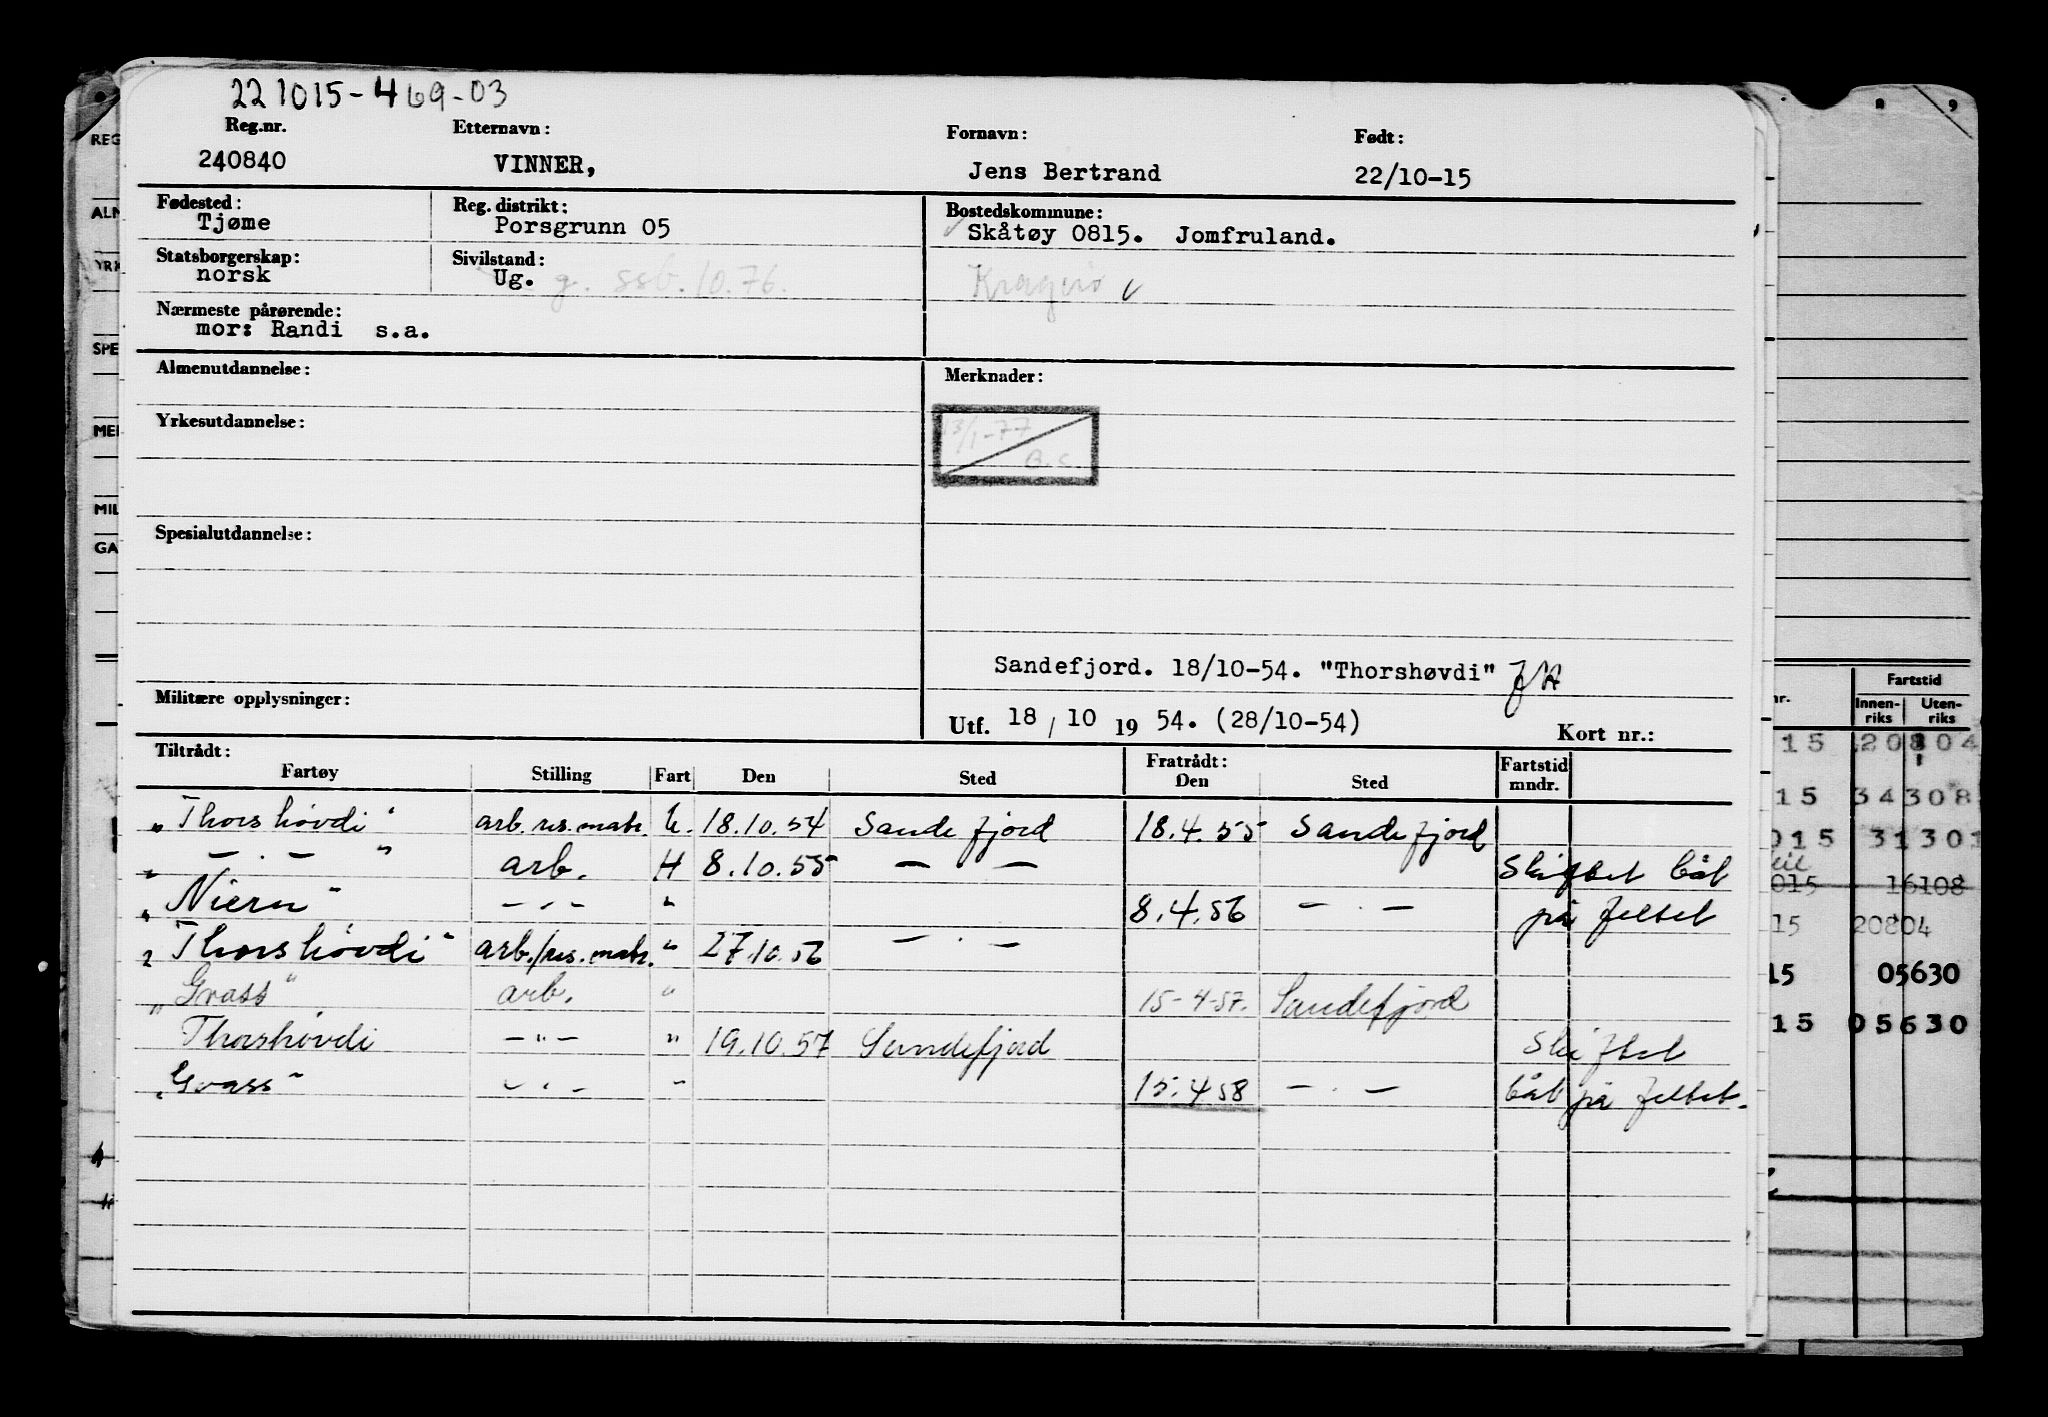 22 1015-469-03
Reg.nr. Etternavn: Fornavn: Født:
240840 VINNER, Jens Bertrand 22/10-15
Fødested: Reg. distrikt: Bostedskommune:
Tjøme Porsgrunn 05 Skåtøy 0815. Jomfruland.
Statsborgerskap: Sivilstand:
norsk Ug. g. ssb. 10.76. Kragerø
Nærmeste pårørende:
mor: Randi s.a.
Almenutdannelse: Merknader:
Yrkesutdannelse: 13/1-77
B.S.
Spesialutdannelse:
Sandefjord. 18/10-54. "Thorshøvdi"
Militære opplysninger: Utf. 18 / 10 19 54. (28/10-54) Kort nr.:
Tiltrådt: Fratrådt: Fartstid
Fartøy Stilling Fart Den Sted Den Sted mndr.
"Thorshøvdi" arb. res. matr. U. 18.10.54 Sandefjord 18.4.55 Sandefjord
" — . — " arb. H 8.10.55 — — Skiftet båt
"Niern" - . - " 8.4.56 — . — på feltet
"Thorshøvdi" arb./res. matr. " 27.10.56 — . —
"Gvass" arb. " 15-4-57. Sandefjord
Thorshøvdi — " — " 19.10.57 Sandefjord Skiftet
"Gvass" - . - " 15.4.58 — . — båt på feltet.
REG
ALM
YRK
SPE
MEI
MIL
GA
8 9
nr. Fartstid
Innen-riks Uten-riks
015 34308
015 31301
015 16108
15 20804
15 05630
15 05630